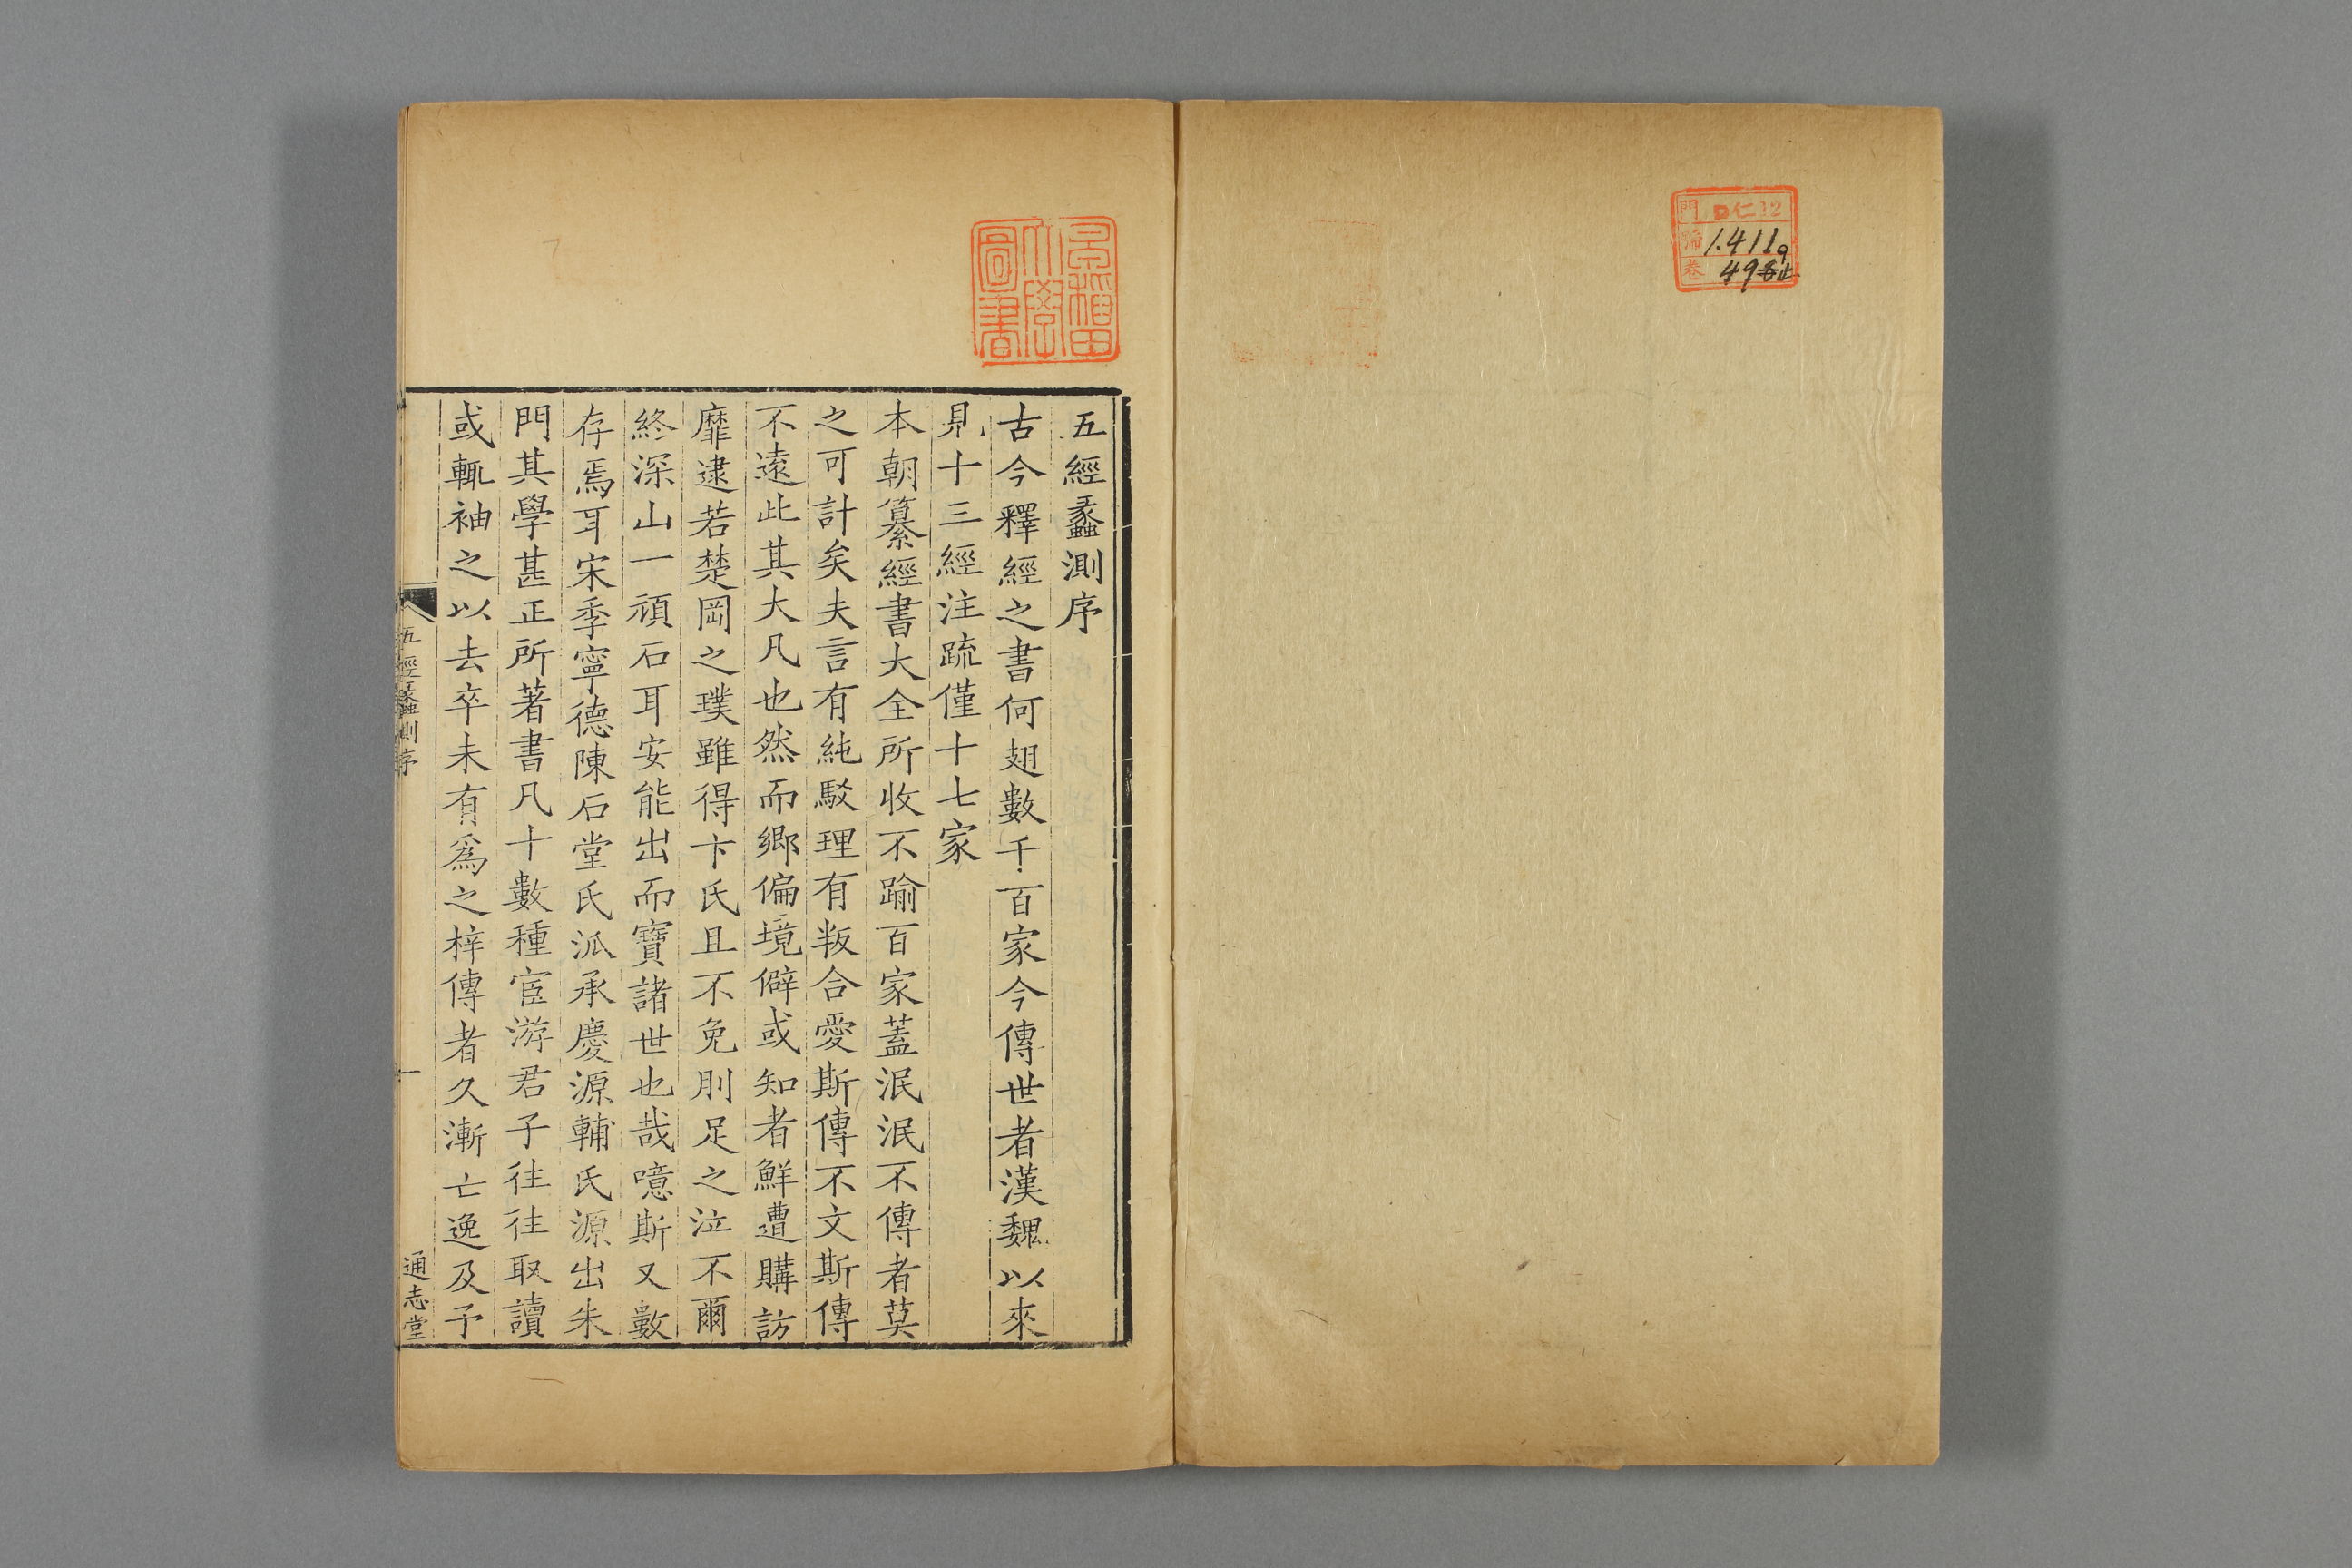 門 ロ仁12
號 1.411
卷 49
早稻田
大學
圖書
五經蠡測序
古今釋經之書何翅數千百家今傳世者漢魏以來
見十三經注疏僅十七家
本朝纂經書大全所收不踰百家蓋泯泯不傳者莫
之可計矣夫言有純駁理有叛合愛斯傳不文斯傳
不遠此其大凡也然而鄉偏境僻或知者鮮遭購訪
靡逮若楚岡之璞雖得卞氏且不免刖足之泣不爾
終深山一頑石耳安能出而寶諸世也哉噫斯又數
存焉耳宋季寧德陳石堂氏派承慶源輔氏源出朱
門其學甚正所著書凡十數種宦游君子往往取讀
或輒袖之以去卒未有爲之梓傳者久漸亡逸及予
五經蠡測序
一
通志堂